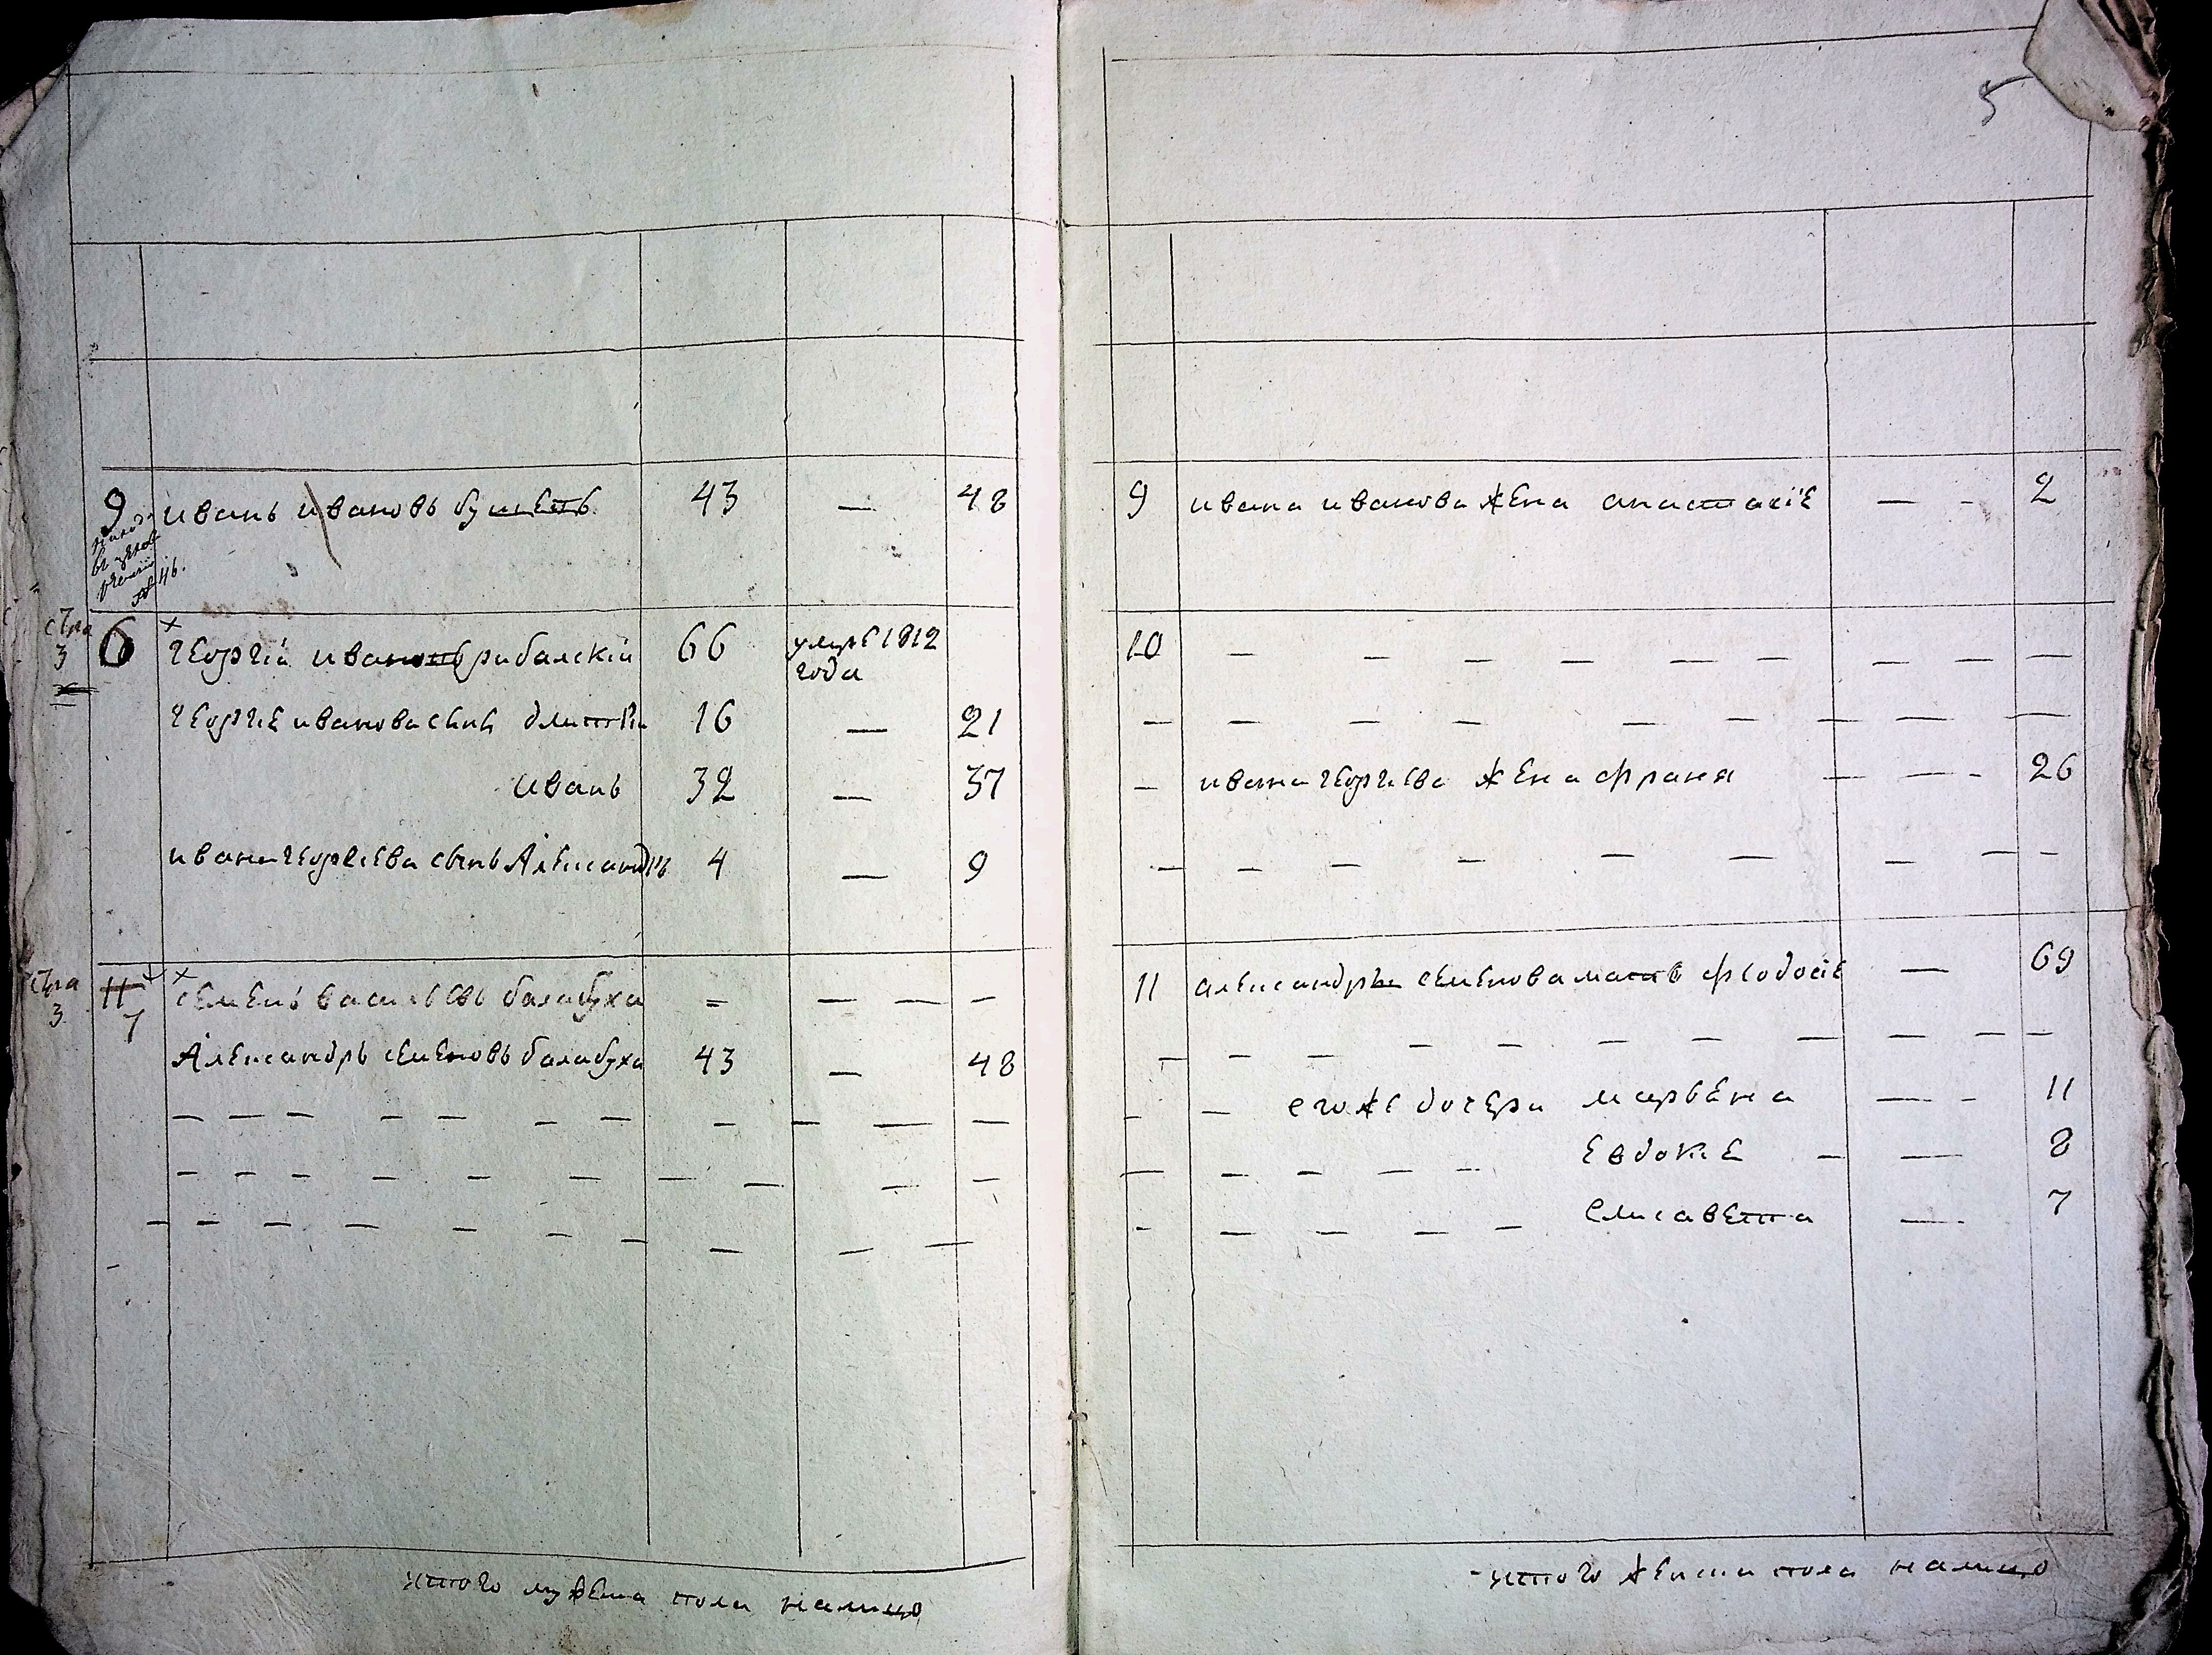 5
9 иванъ ивановъ бу 43 — 48
№ 46.
стра 3 6 × георгiй ивановъ рибалскiй 66 умре 1812 года
георгие иванова сынъ дмитрiи 16 — 21
иванъ 32 — 37
ивана георгиева сынъ Александръ 4 — 9
стра 3 11 7 × семенъ василъевъ балабуха — — — —
Александръ семеновъ балабуха 43 — 48
итого мужеска пола налицо
9 ивана иванова жена анастасiе — - 2
10 — — — — — — — — —
— ивана георгиева жена франя — — - 26
11 александръ семенова матъ феодосiе — 69
— — егоже дочери марвена — - 11
евдокiе — — 8
елисавета — 7
итого женска пола налицо